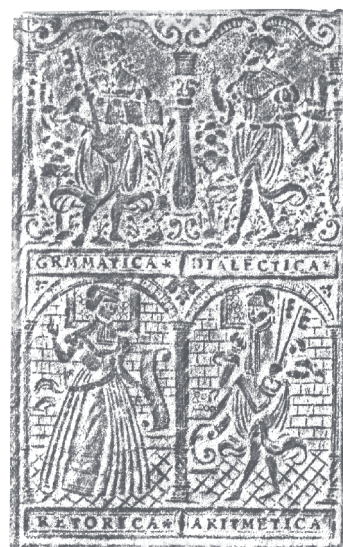 GRMMATICA * DIALECTICA *
RETORICA * ARITMETICA